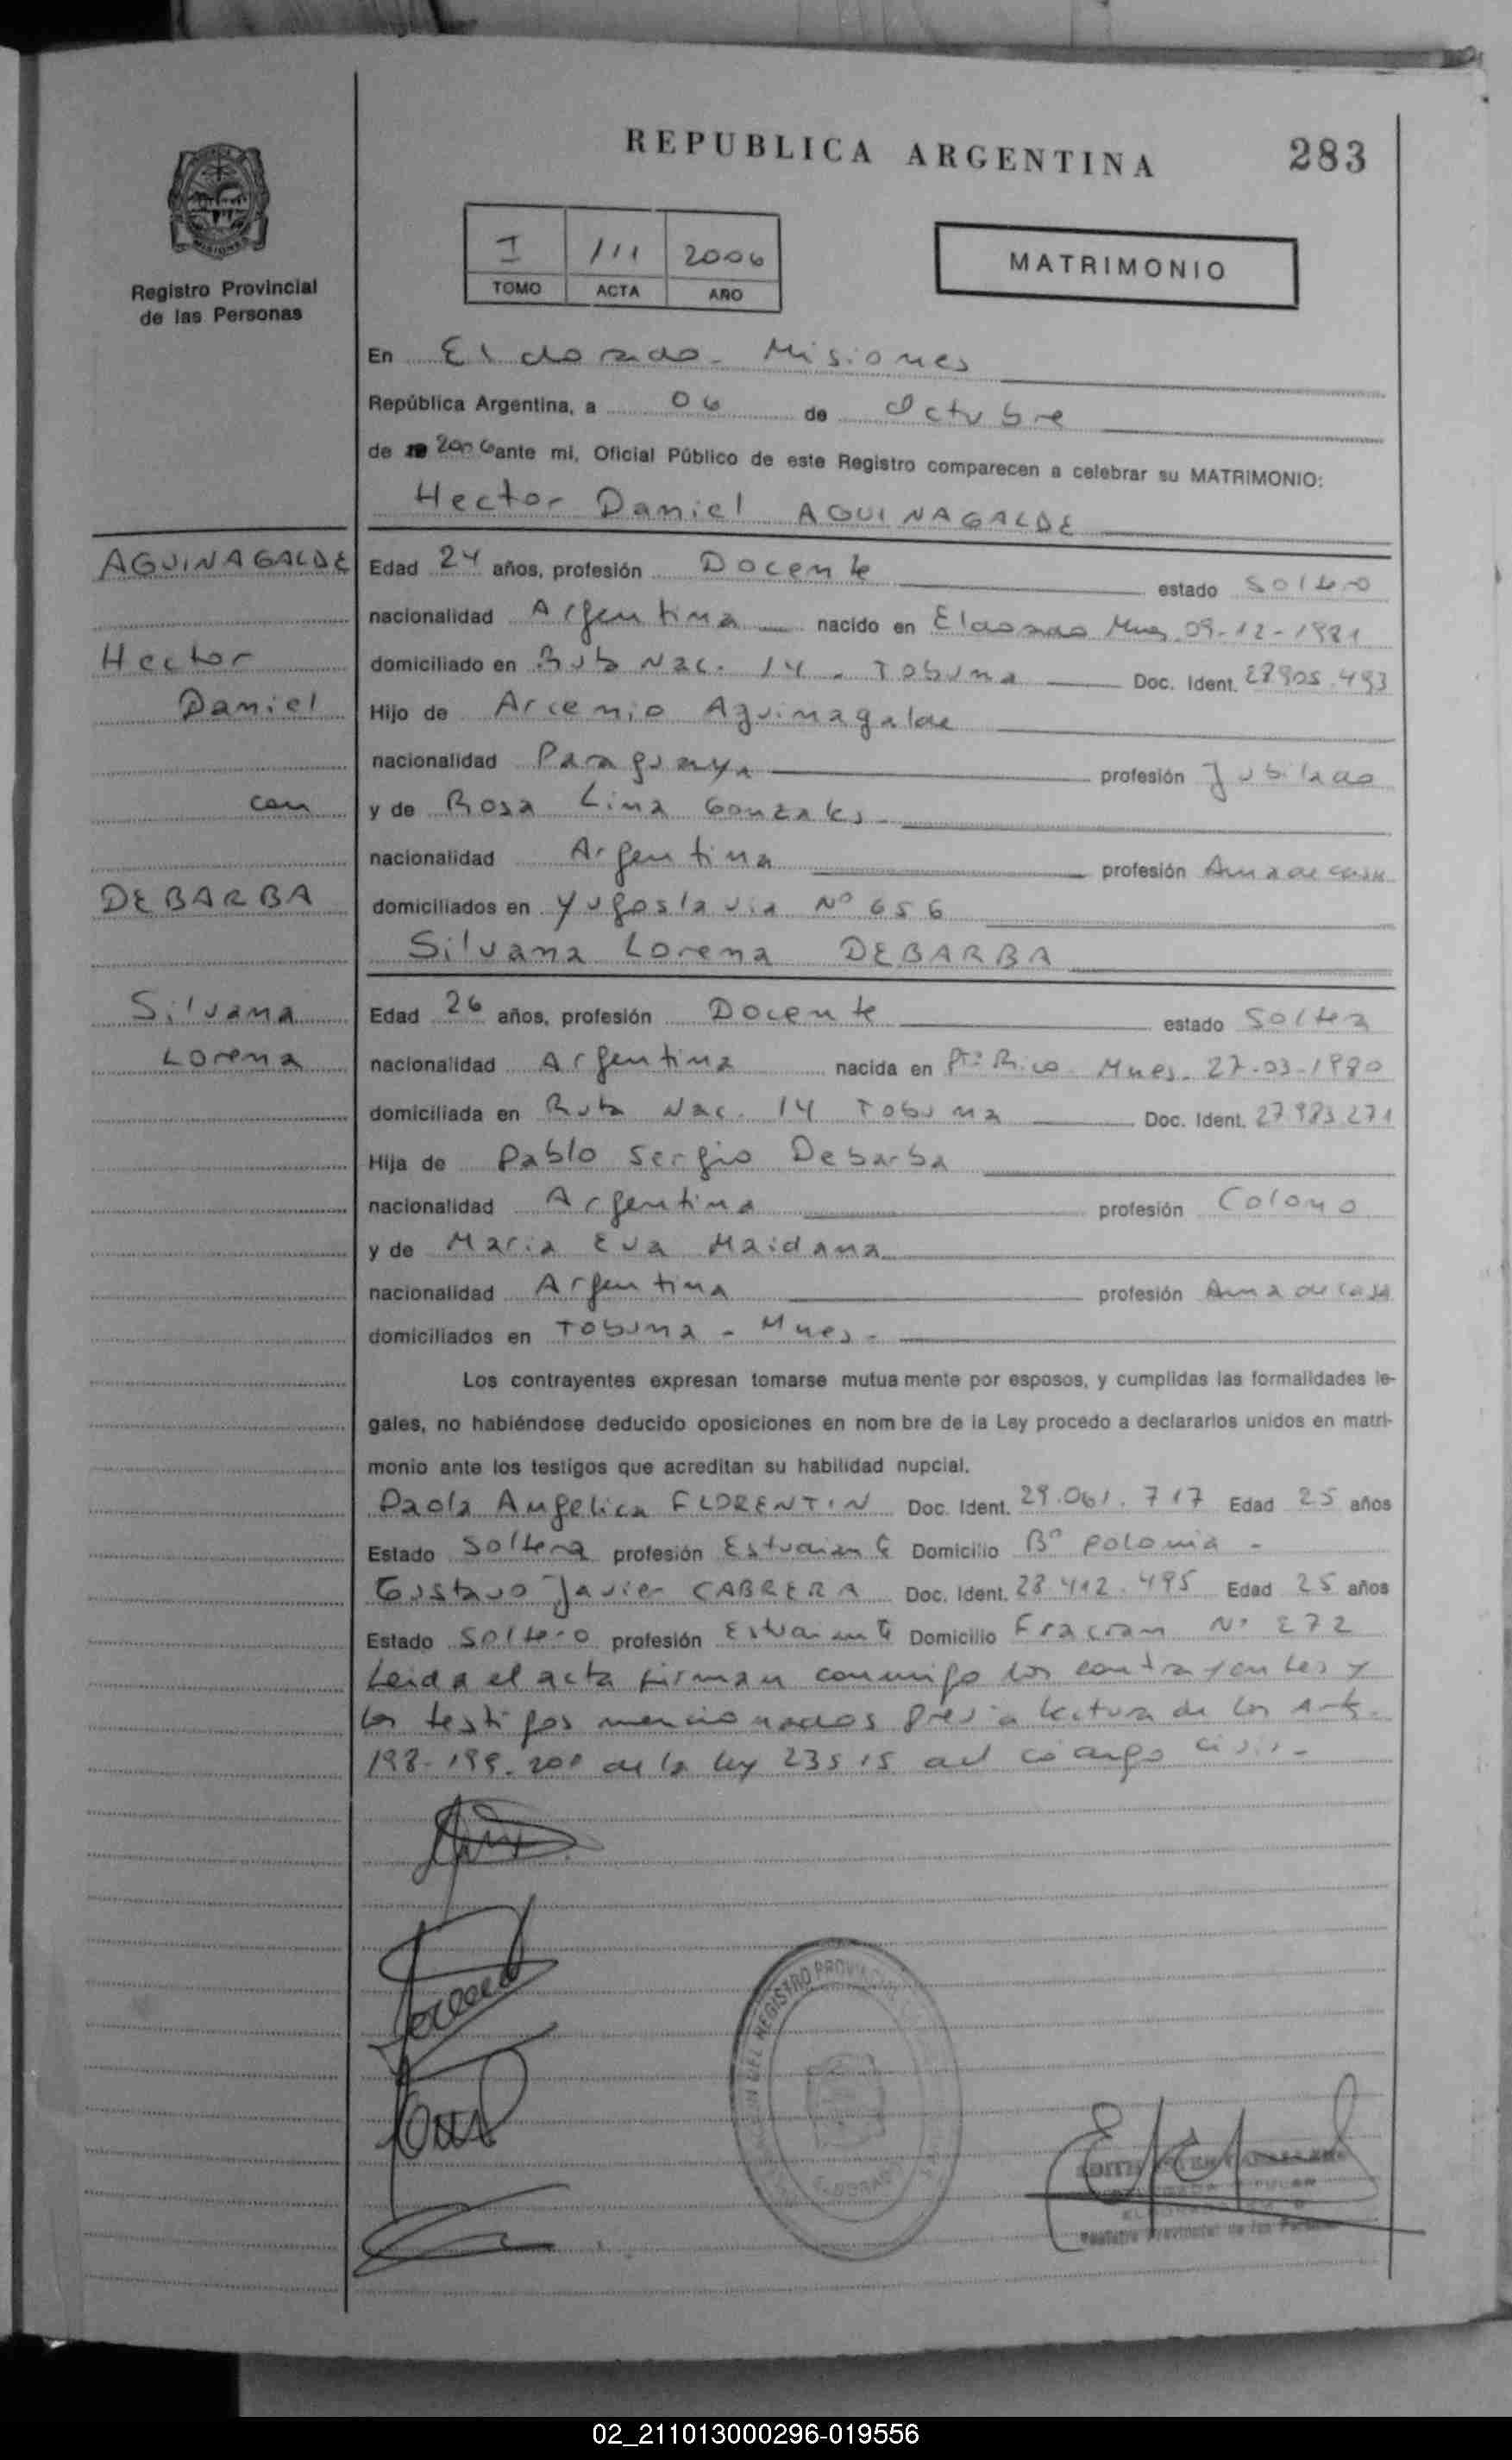 REPUBLICA ARGENTINA
283
Registro Provincial
de las Personas
I 111 2006
TOMO ACTA AÑO
MATRIMONIO
En Eldorado - Misiones
República Argentina, a 06 de Octubre
de 2006 ante mi, Oficial Público de este Registro comparecen a celebrar su MATRIMONIO:
Hector Daniel AGUINAGALDE
AGUINAGALDE
Hector
Daniel
con
DEBARBA
Silvana
Lorena
Edad 24 años, profesión Docente estado Soltero
nacionalidad Argentina nacido en Eldorado Mnes 09-12-1981
domiciliado en Ruta Nac. 14 - Tobuna Doc. Ident. 28905.493
Hijo de Arcenio Aguinagalde
nacionalidad Paraguaya profesión Jubilado
y de Rosa Lina Gonzales -
nacionalidad Argentina profesión Ama de casa
domiciliados en Yugoslavia Nº 656
Silvana Lorena DEBARBA
Edad 26 años, profesión Docente estado Soltera
nacionalidad Argentina nacida en Pto Rico - Mnes - 27-03-1980
domiciliada en Ruta Nac. 14 Tobuna Doc. Ident. 27.983.271
Hija de Pablo Sergio Debarba
nacionalidad Argentina profesión Colono
y de Maria Eva Maidana
nacionalidad Argentina profesión Ama de casa
domiciliados en Tobuna - Mnes -
Los contrayentes expresan tomarse mutua mente por esposos, y cumplidas las formalidades le-
gales, no habiéndose deducido oposiciones en nom bre de la Ley procedo a declararlos unidos en matri-
monio ante los testigos que acreditan su habilidad nupcial.
Paola Angelica FLORENTIN Doc. Ident. 29.061.717 Edad 25 años
Estado Soltera profesión Estudiante Domicilio Bº Polonia -
Gustavo Javier CABRERA Doc. Ident. 28.412.495 Edad 25 años
Estado Soltero profesión Estudiante Domicilio Fracran Nº 272
Leida el acta firman conmigo los contrayentes y
los testigos mencionados previa lectura de los Arts.
198-199-200 de la ley 23515 del código civil -
DEL REGISTRO PROVINCIAL
ELDORADO
EDITH
Registro Provincial de las Personas
02_211013000296-019556